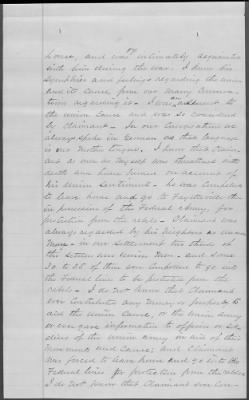 house, and was intimately acquainted
with him during the war. I knew his
sympathies and feelings regarding the union
and its cause from our many conversa-
tions regarding it. I was an adherent to
the union cause and was so considered
by Claimant. In our conversations we
always spoke in German as that language
is our Mother tongue. I know that Claim-
ant as well as myself was threatened with
death and being burned on account of
his Union Sentiments - he was compelled
to leave home and go to Fayetteville then
in possession of the Federal Army, for
protection from the rebels - Claimant was
always regarded by his neighbors as union
Man - in our settlement two thirds of
the settlers were Union Men - and some
20 to 25 of them were compelled to go into
the Federal lines to be protected from the
rebels - I do not know that Claimant
ever contributed any money or property to
aid the union cause, or the union Army
or ever gave information to officers or sol-
diers of the union army in aid of their
Movements and Cause; and Claimant
was forced to leave home and go into the
Federal lines for protection from the rebels
I do not know that Claimant ever con-